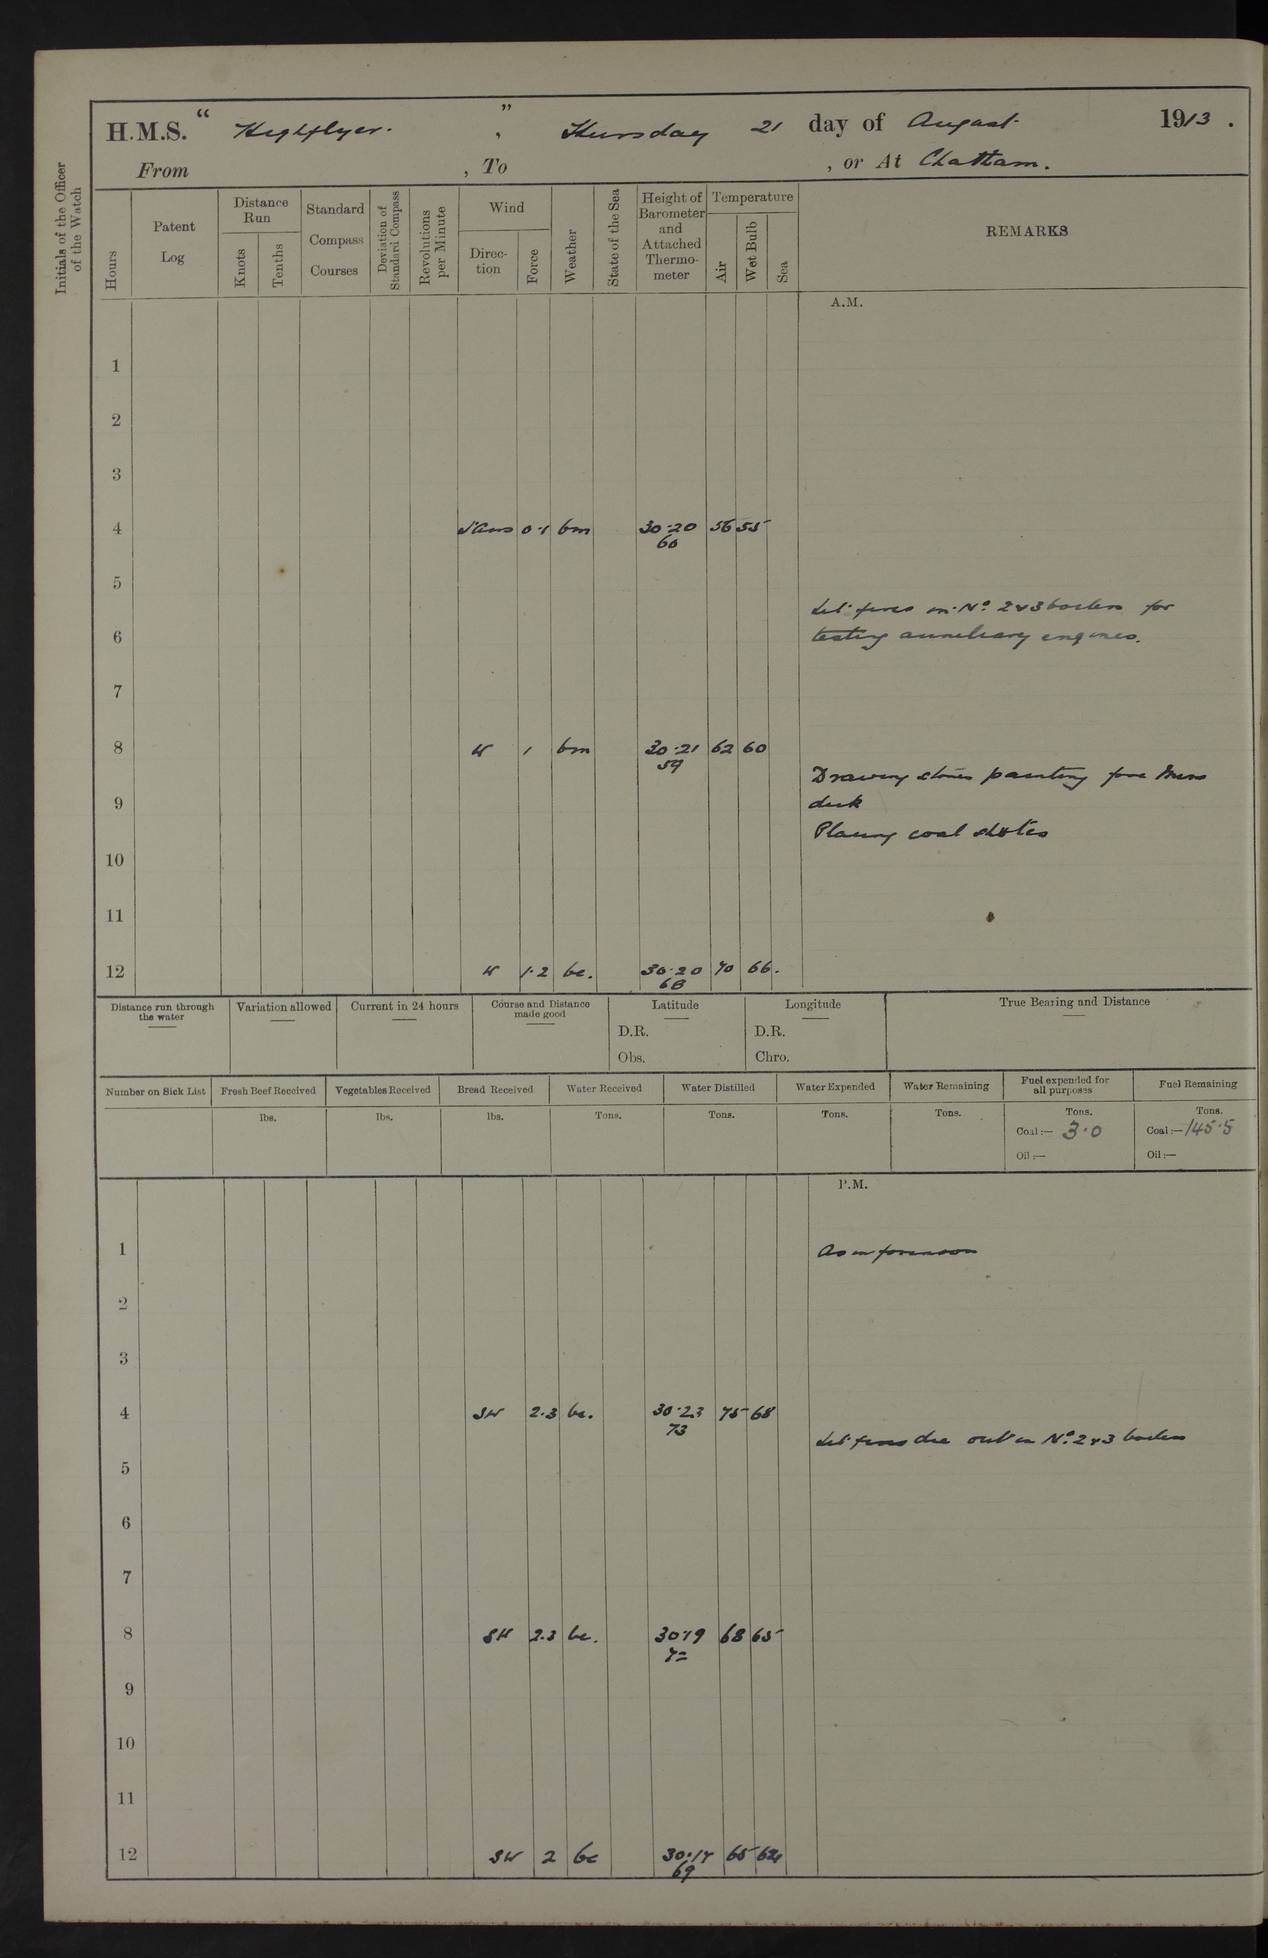 H.M.S. “ Highflyer. ” , Thursday 21 day of August. 1913 .
From , To , or At Chatham.
Initials of the Officer of the Watch
Hours
Patent Log
Distance Run
Knots
Tenths
Standard Compass Courses
Deviation of Standard Compass
Revolutions per Minute
Wind
Direction
Force
Weather
State of the Sea
Height of Barometer and Attached Thermometer
Temperature
Air
Wet Bulb
Sea
REMARKS
A.M.
1
2
3
4 0.1 bm 30.20 56 55
60
5
Lit fires in No. 2 & 3 boilers for
6 testing auxiliary engines.
7
8 W 1 bm 30.21 62 60
59
Drawing stores painting fore mess
9 deck
Placing coal shutes
10
11
12 W 1.2 bc. 30.20 70 66.
68
Distance run through the water
Variation allowed
Current in 24 hours
Course and Distance made good
Latitude
D.R.
Obs.
Longitude
D.R.
Chro.
True Bearing and Distance
Number on Sick List
Fresh Beef Received
lbs.
Vegetables Received
lbs.
Bread Received
lbs.
Water Received
Tons.
Water Distilled
Tons.
Water Expended
Tons.
Water Remaining
Tons.
Fuel expended for all purposes
Tons.
Coal :— 3.0
Oil :—
Fuel Remaining
Tons.
Coal :— 145.5
Oil :—
P.M.
1 As in forenoon
2
3
4 SW 2.3 bc. 30.23 75 68
73
Let fires die out in No. 2 & 3 boilers
5
6
7
8 SW 2.3 bc. 30.19 68 65
72
9
10
11
12 SW 2 bc 30.17 65
69